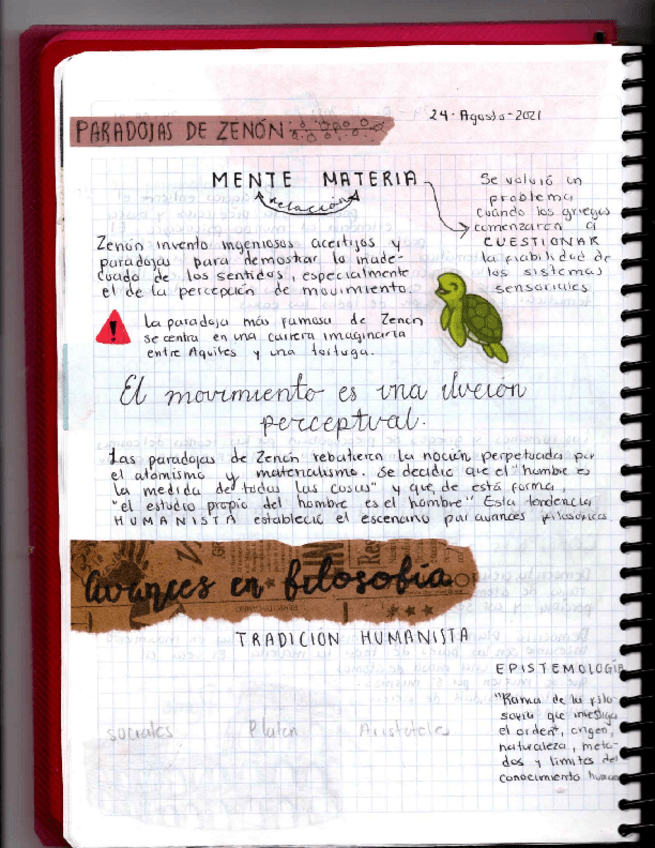 24·Agosto·2021
PARADOJAS DE ZENÓN
MENTE MATERIA
relación
Se volvió un
problema
cuando los griegos
comenzaron a
CUESTIONAR
la fiabilidad de
los sistemas
sensoriales
Zenón invento ingeniosos acertijos y
paradojas para demostrar lo inade-
cuado de los sentidos, especialmente
el de la percepción de movimiento.
!
La paradoja más famosa de Zenón
se centra en una carrera imaginaria
entre Aquiles y una tortuga.
El movimiento es una ilusión
perceptual.
Las paradojas de Zenón rebatieron la noción perpetuada por
el atomismo y materialismo. Se decidió que el "hombre es
la medida de todas las cosas" y que, de está forma,
"el estudio propio del hombre es el hombre" Esta tendencia
HUMANISTA estableció el escenario par avances filosóficos
avances en filosofía
TRADICIÓN HUMANISTA
EPISTEMOLOGÍA
"Rama de la filo-
sofía que investiga
el orden, origen,
naturaleza, méto-
dos y límites del
conocimiento humano
sociales Platón Aristóteles